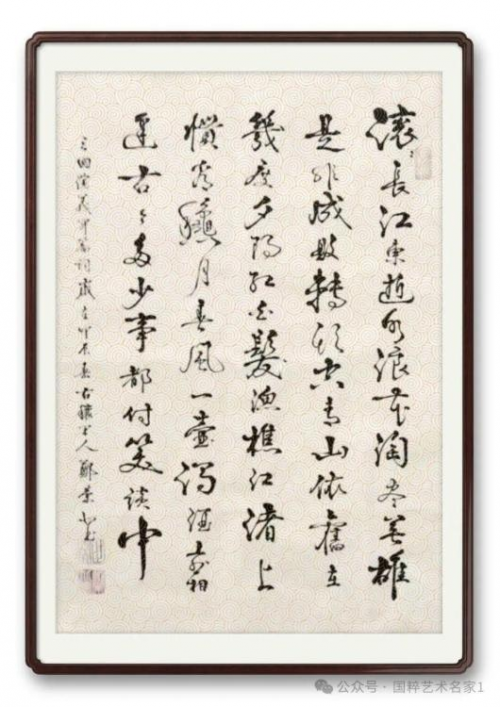 滚〻長江東逝水浪花淘盡英雄
是非成敗轉頭空青山依舊在
幾度夕陽紅白髮漁樵江渚上
慣看龝月春風一壺濁酒喜相
逢古〻多少事都付笑談中
三國演義開篇詞歲在甲辰春古穰人鄭景
公众号·国粹艺术名家1